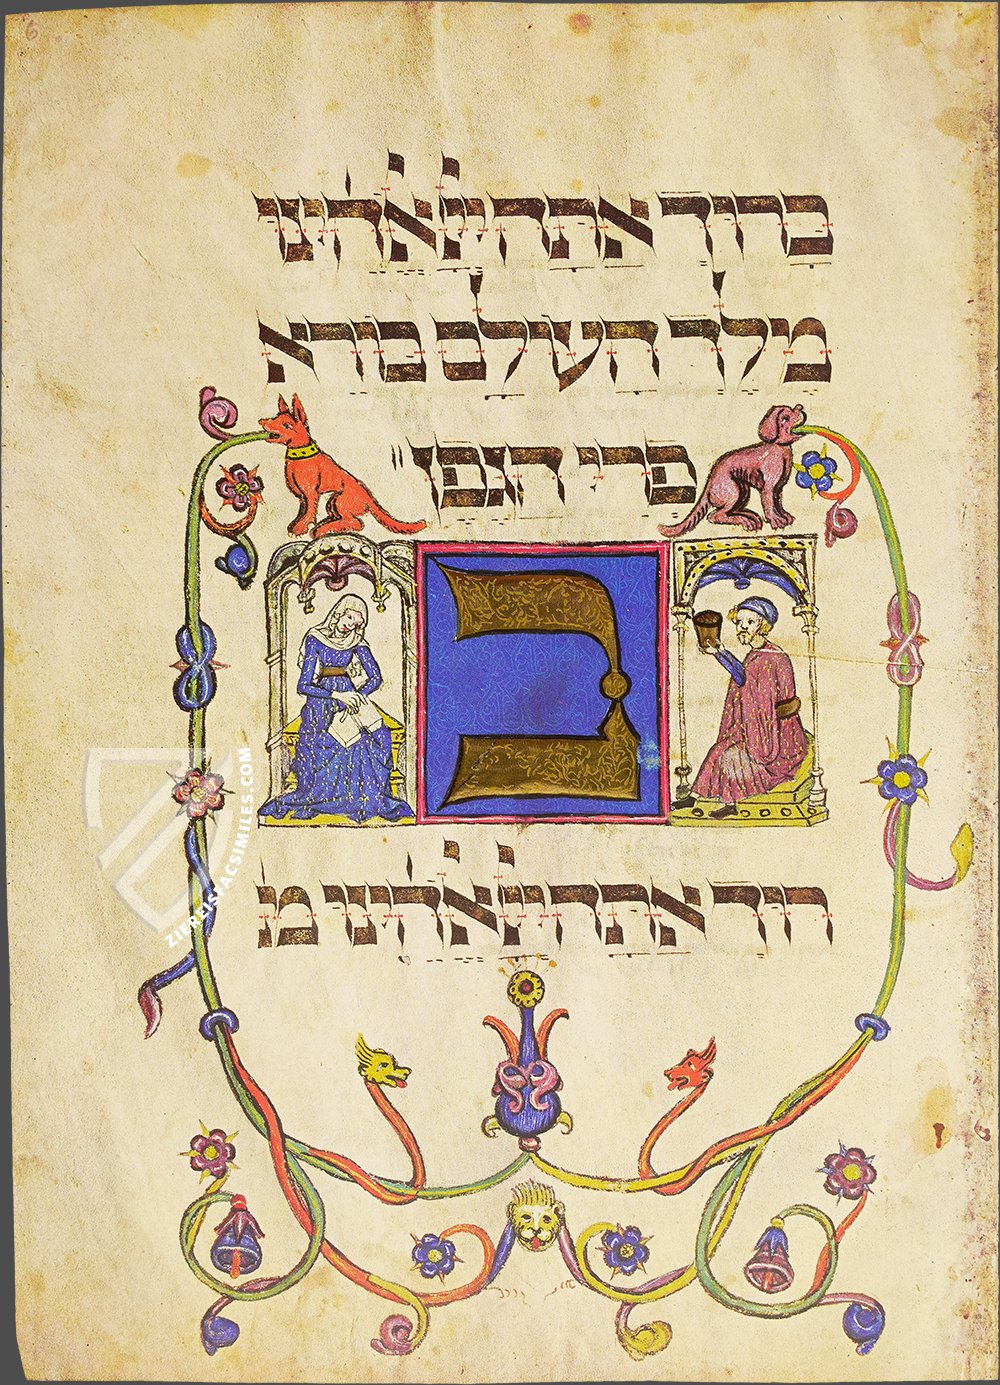 6
ברוך אתה ייי אלהינו
מלך העולם בורא
פרי הגפן״
ב
רוך אתה ייי אלהינו מ
ZIEREIS FACSIMILES.COM